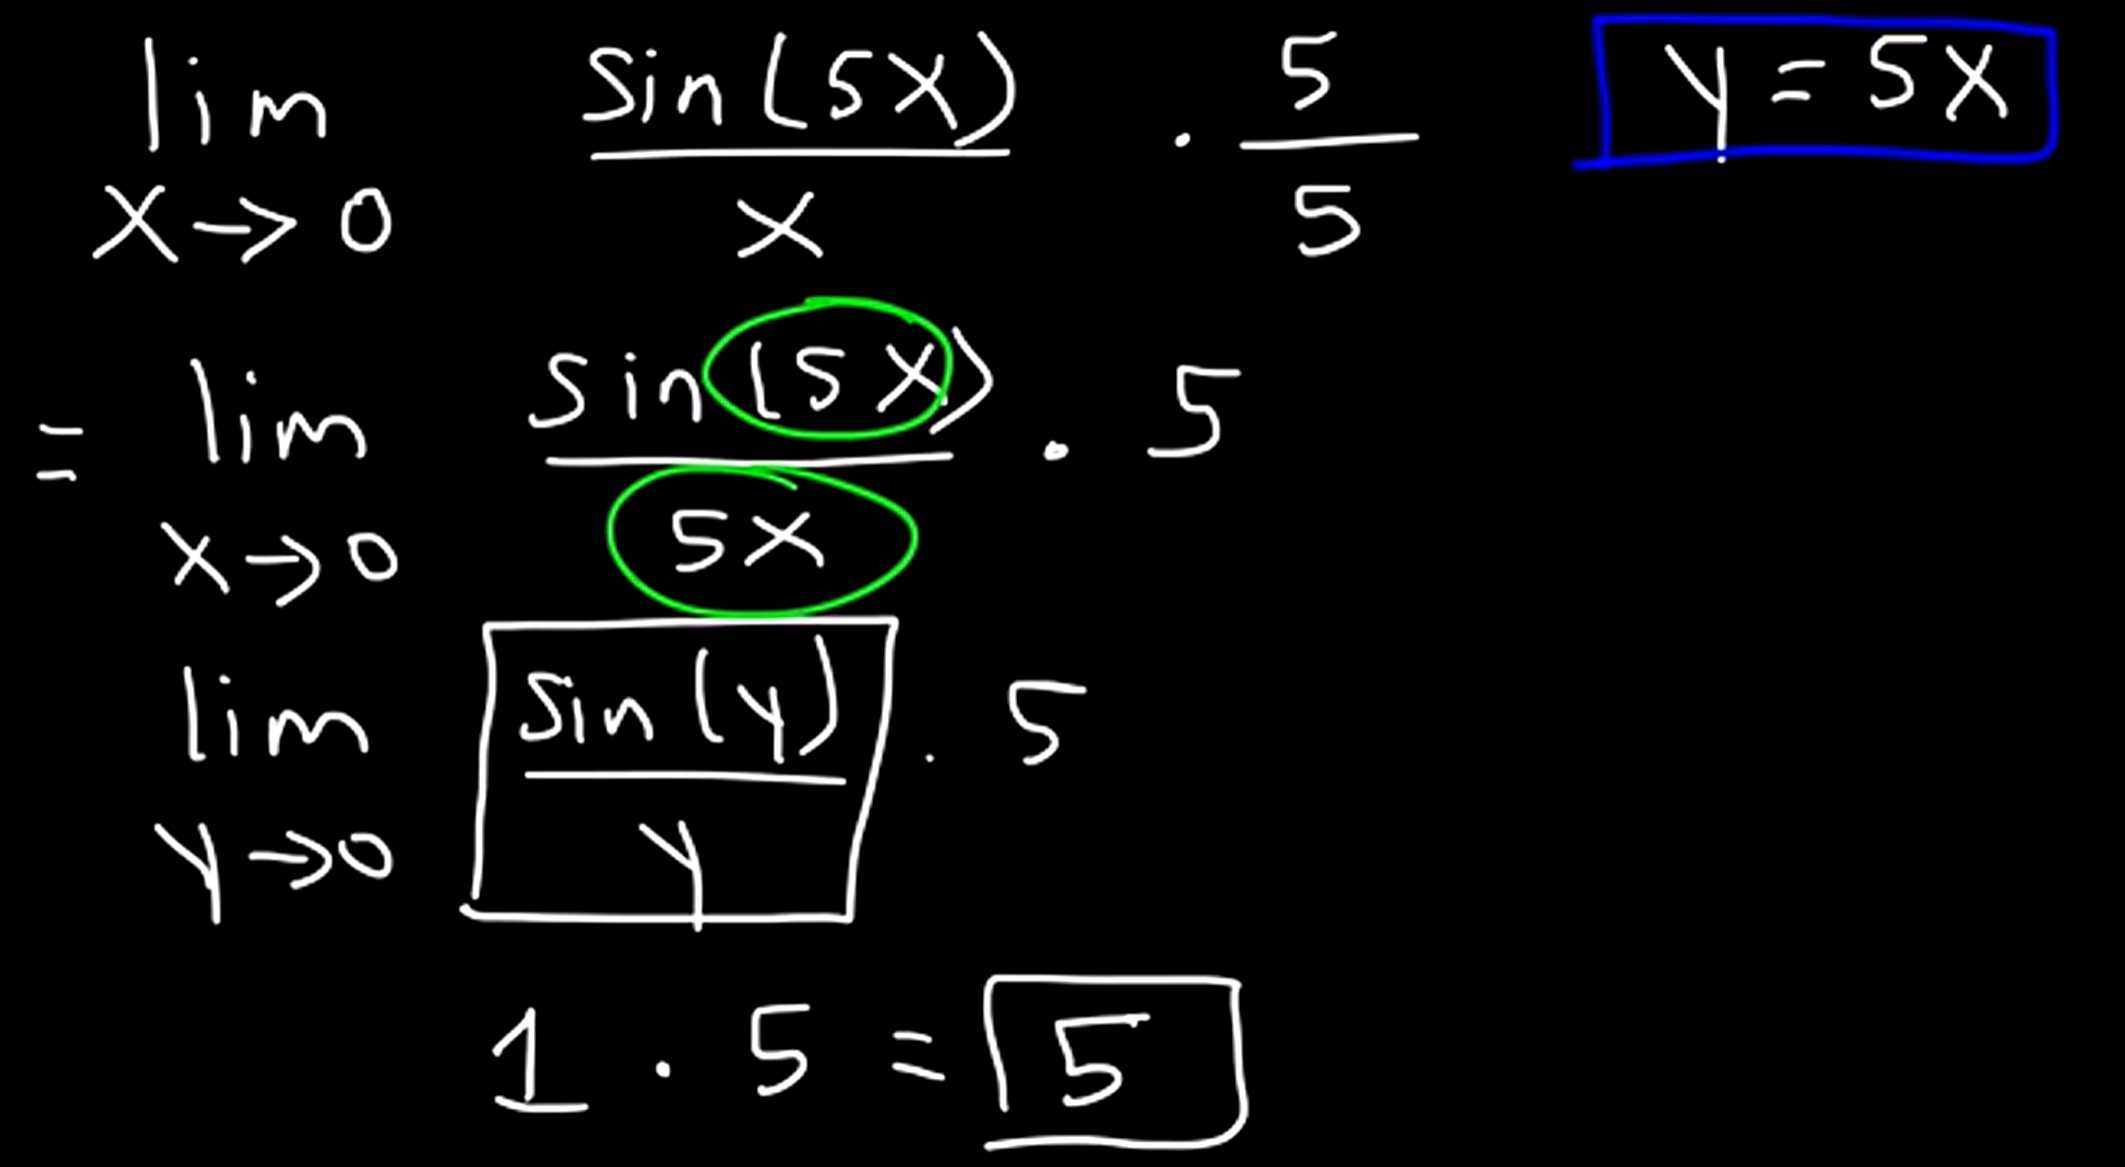 lim x→0 sin(5x)/x · 5/5 y = 5x
= lim x→0 sin(5x)/5x · 5
lim y→0 sin(y)/y · 5
1 · 5 = 5